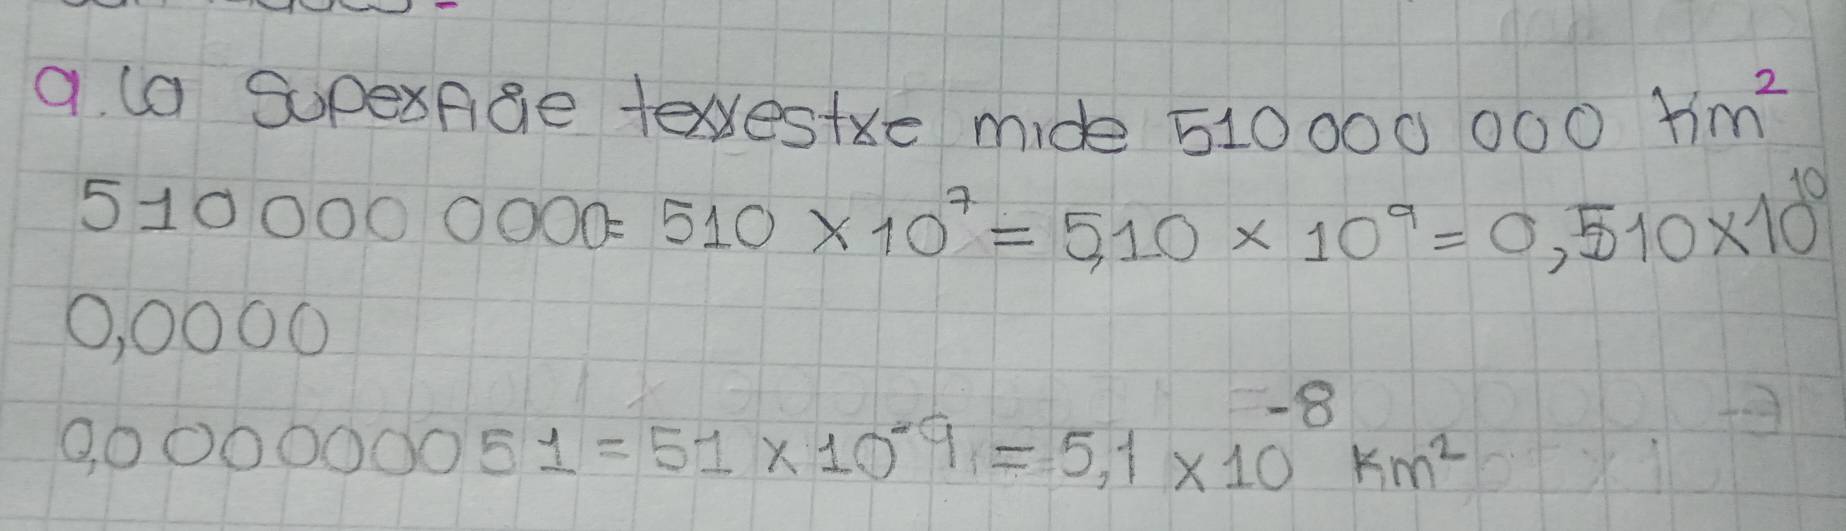 a. la superficie terrestre mide 510 000 000 km²
510 000 0000= 510 × 10⁷ = 5,10 × 10⁹ = 0,510×10¹⁰
0,0000
0,0000000051 = 51 × 10⁻⁹ = 5,1 × 10⁻⁸ km²